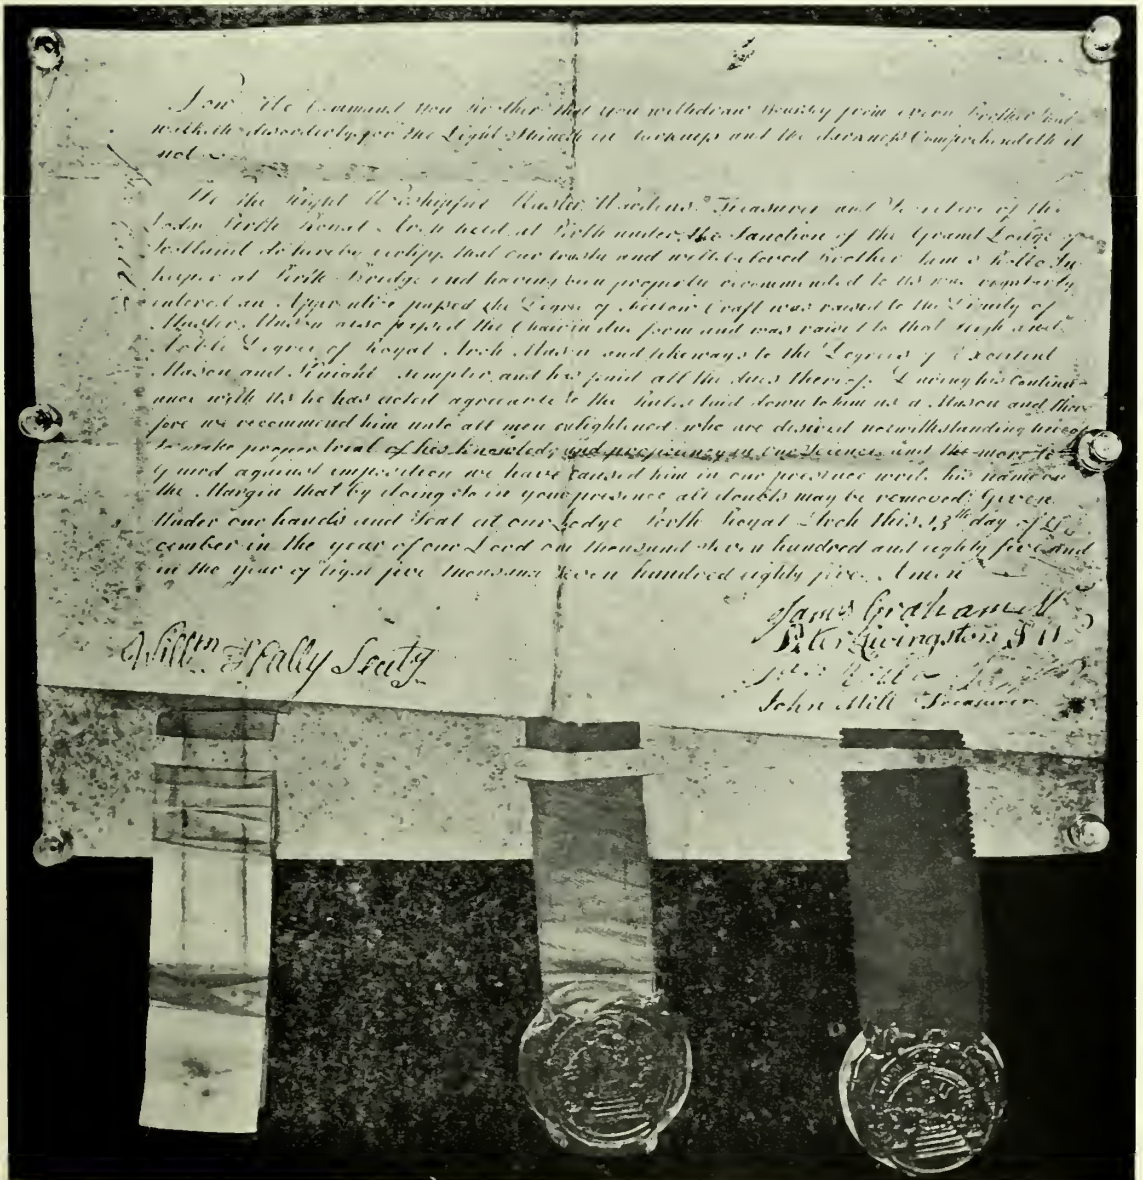 Now We Command you Brother that you withdraw yourself from every Brother that
walketh disorderly, for the Light Shineth in darkness and the darkness Comprehendeth it
not
We the Right Worshipful Master Wardens Treasurer and Secretary of the
Lodge Perth Royal Arch held at Perth under the Sanction of the Grand Lodge of
Scotland do hereby certify, that our trusty and well beloved Brother James Rollo In
keeper at Perth Bridge and having been properly recommended to us was regularly
entered an Apprentice passed the Degree of Fellow Craft was raised to the Dignity of
Master Mason also passed the Chair in due form and was raised to that High and
Noble Degree of Royal Arch Mason and likeways to the Degrees of Excelent
Mason and Templer, and has paid all the dues thereof. During his continu
ance with Us he has acted agreeable to the Rules laid down to him as a Mason and there
fore we recommend him unto all men enlightened who are desired notwithstanding hereof
to make proper trial of his knowledge and proficiency in our Science and the more to
Guard against imposition we have caused him in our presence write his name on
the Margin that by doing so in your presence all doubts may be removed. Given
Under our hands and Seal at our Lodge Perth Royal Arch this 13th day of De
cember in the year of our Lord one thousand seven hundred and eighty five and
in the year of light five thousand seven hundred eighty five Amen
James Graham M
Peter Livingston S W
Willm Hally Secrty
John Mill Treasurer